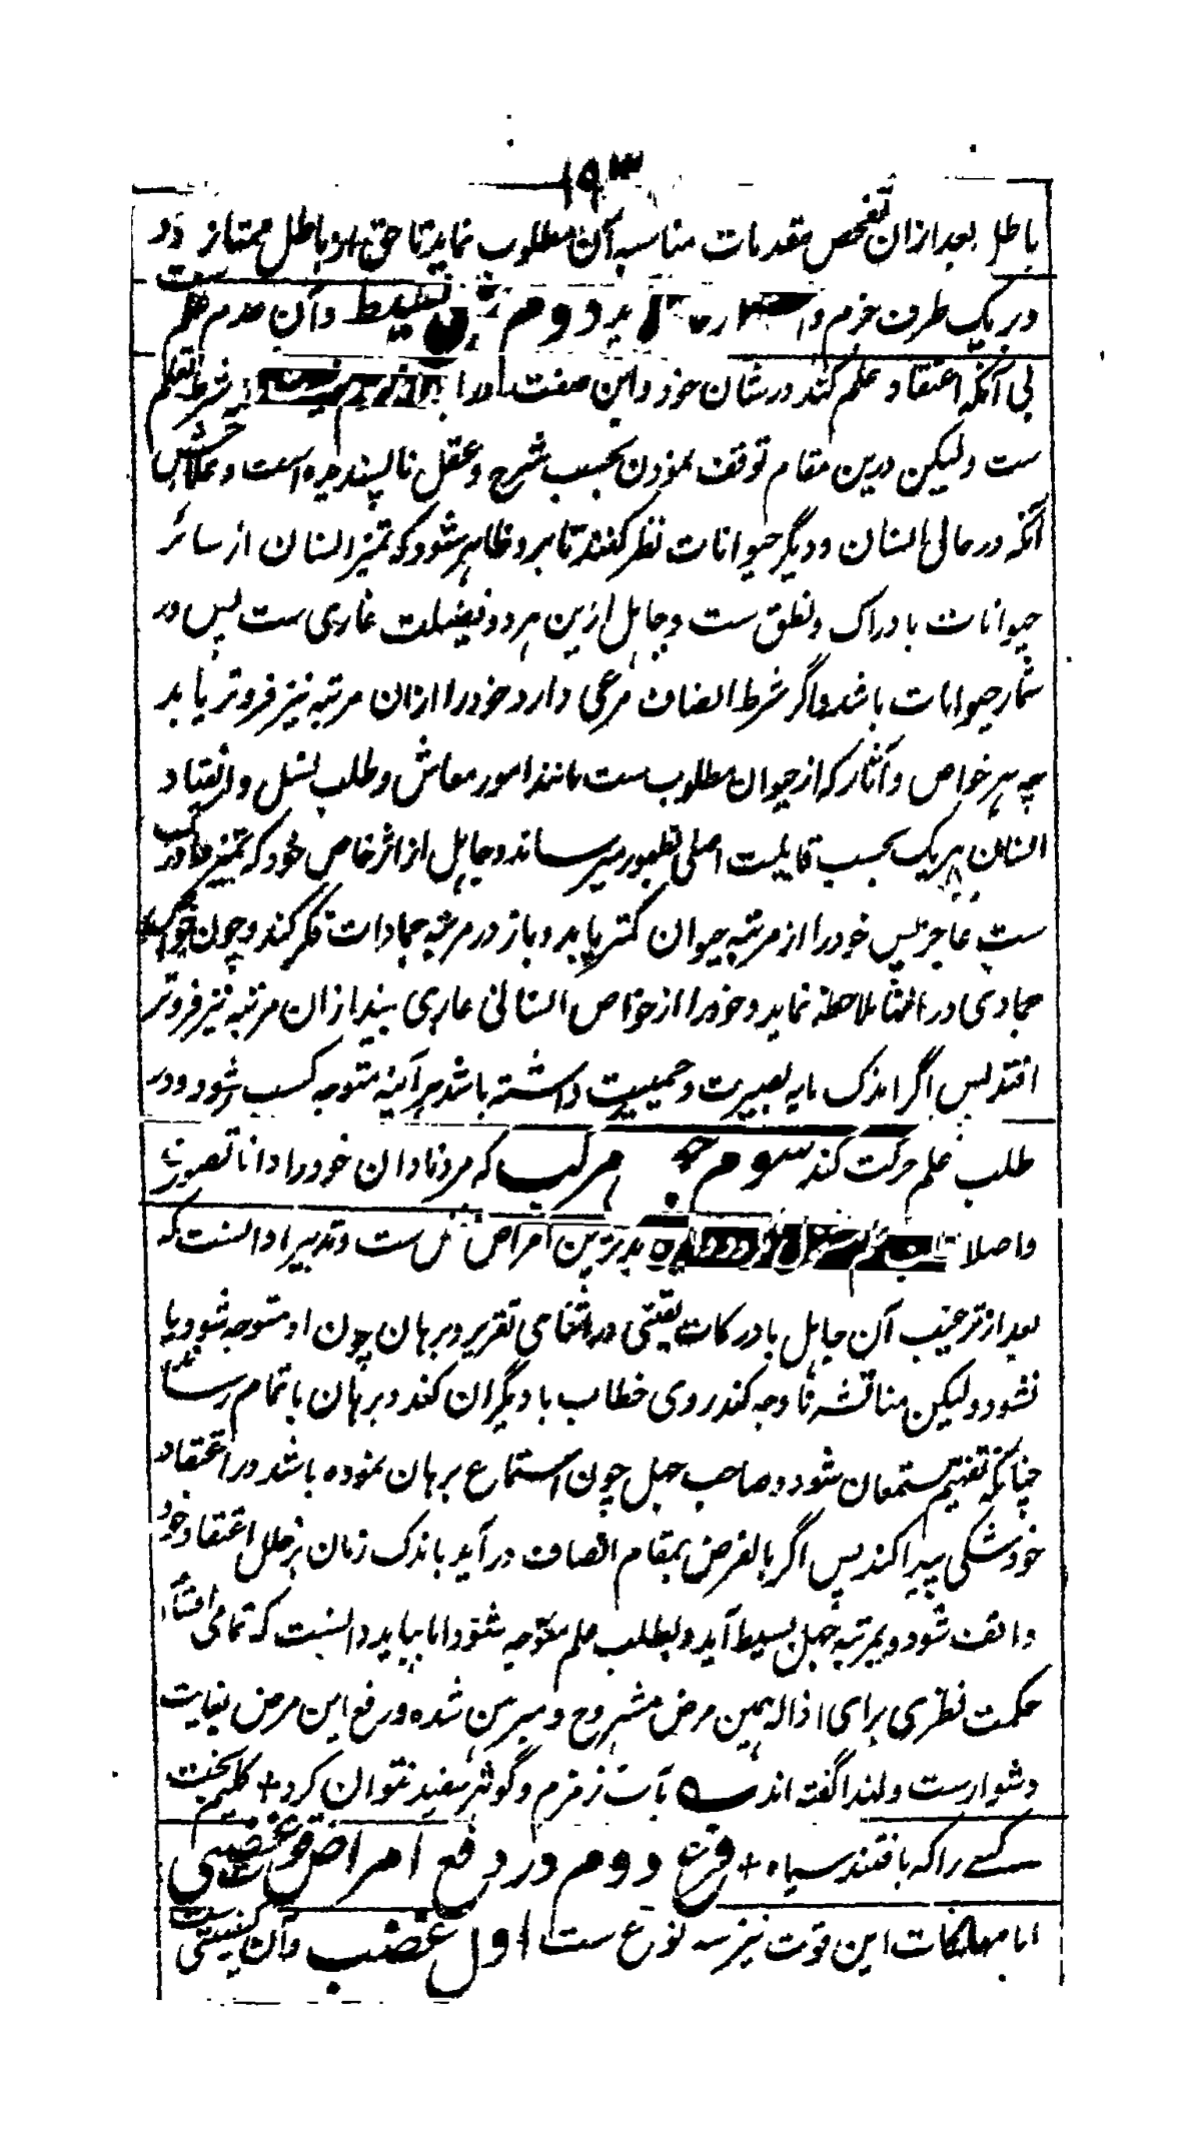 ۱۹۳
باطل بعد ازان تفحص مقدمات مناسبه آن مطلوب نماید تا حق از باطل ممتاز گردد
در یک طرف جزم و دوم جهل بسیط و آن عدم علم ست
بی آنکه اعتقاد علم کند در شان خود و این صفت شرط تعلم
ست ولیکن درین مقام توقف نمودن بحسب شرع و عقل ناپسندیده است و علاجش
آنکه در حال انسان و دیگر حیوانات نظر کنند تا برو ظاهر شود که تمیز انسان از سائر
حیوانات بادراک و نطق ست و جاهل ازین هر دو فضیلت عاری ست پس در
شمار حیوانات باشد و اگر شرط انصاف مرعی دارد خود را ازان مرتبه نیز فروتر یابد
چه هر خواص و آثار که از حیوان مطلوب ست مانند امور معاش و طلب نسل و انقیاد
انسان هر یک بحسب قابلیت اصلی بظهور میرساند و جاهل از اثر خاص خود که تمیز
ست عاجز پس خود را از مرتبه حیوان کمتر یابد و باز در مرتبه جمادات فکر کند و چون خواص
جمادی در آنها ملاحظه نماید و خود را از خواص انسانی عاری بیند ازان مرتبه نیز فروتر
افتد پس اگر اندک مایه بصیرت و حمیت داشته باشد هر آینه متوجه کسب شود و در
طلب علم حرکت کند سوم جهل مرکب که مرد نادان خود را دانا تصور
و اصلا بدترین امراض ست و تدبیر او آنست که
بعد از ترغیب آن جاهل بادراکات یقینی در اثنای تقریر و برهان چون او متوجه شود یا
نشود ولیکن مناقشه تا وجه کند روی خطاب با دیگران کند و برهان باتمام رساند
چنانکه تفهیم مستمعان شود و صاحب جهل چون استماع برهان نموده باشد در اعتقاد
خود شکی پیدا کند پس اگر بالفرض بمقام انصاف در آید باندک زمان بر خلل اعتقاد خود
واقف شود و بمرتبه جهل بسیط آید و بطلب علم متوجه شود اما بباید دانست که تمامی اقسام
حکمت نظری برای ازاله همین مرض مشروح و مبرهن شده و رفع این مرض بغایت
دشوارست و لهذا گفته اند ؎ بآب زمزم و کوثر سفید نتوان کرد + گلیم بخت
کسے را که بافتند سیاه + فرع دوم در دفع امراض قوت غضبی
اما مهلکات این قوت نیز سه نوع ست اول غضب و آن کیفیتی ست